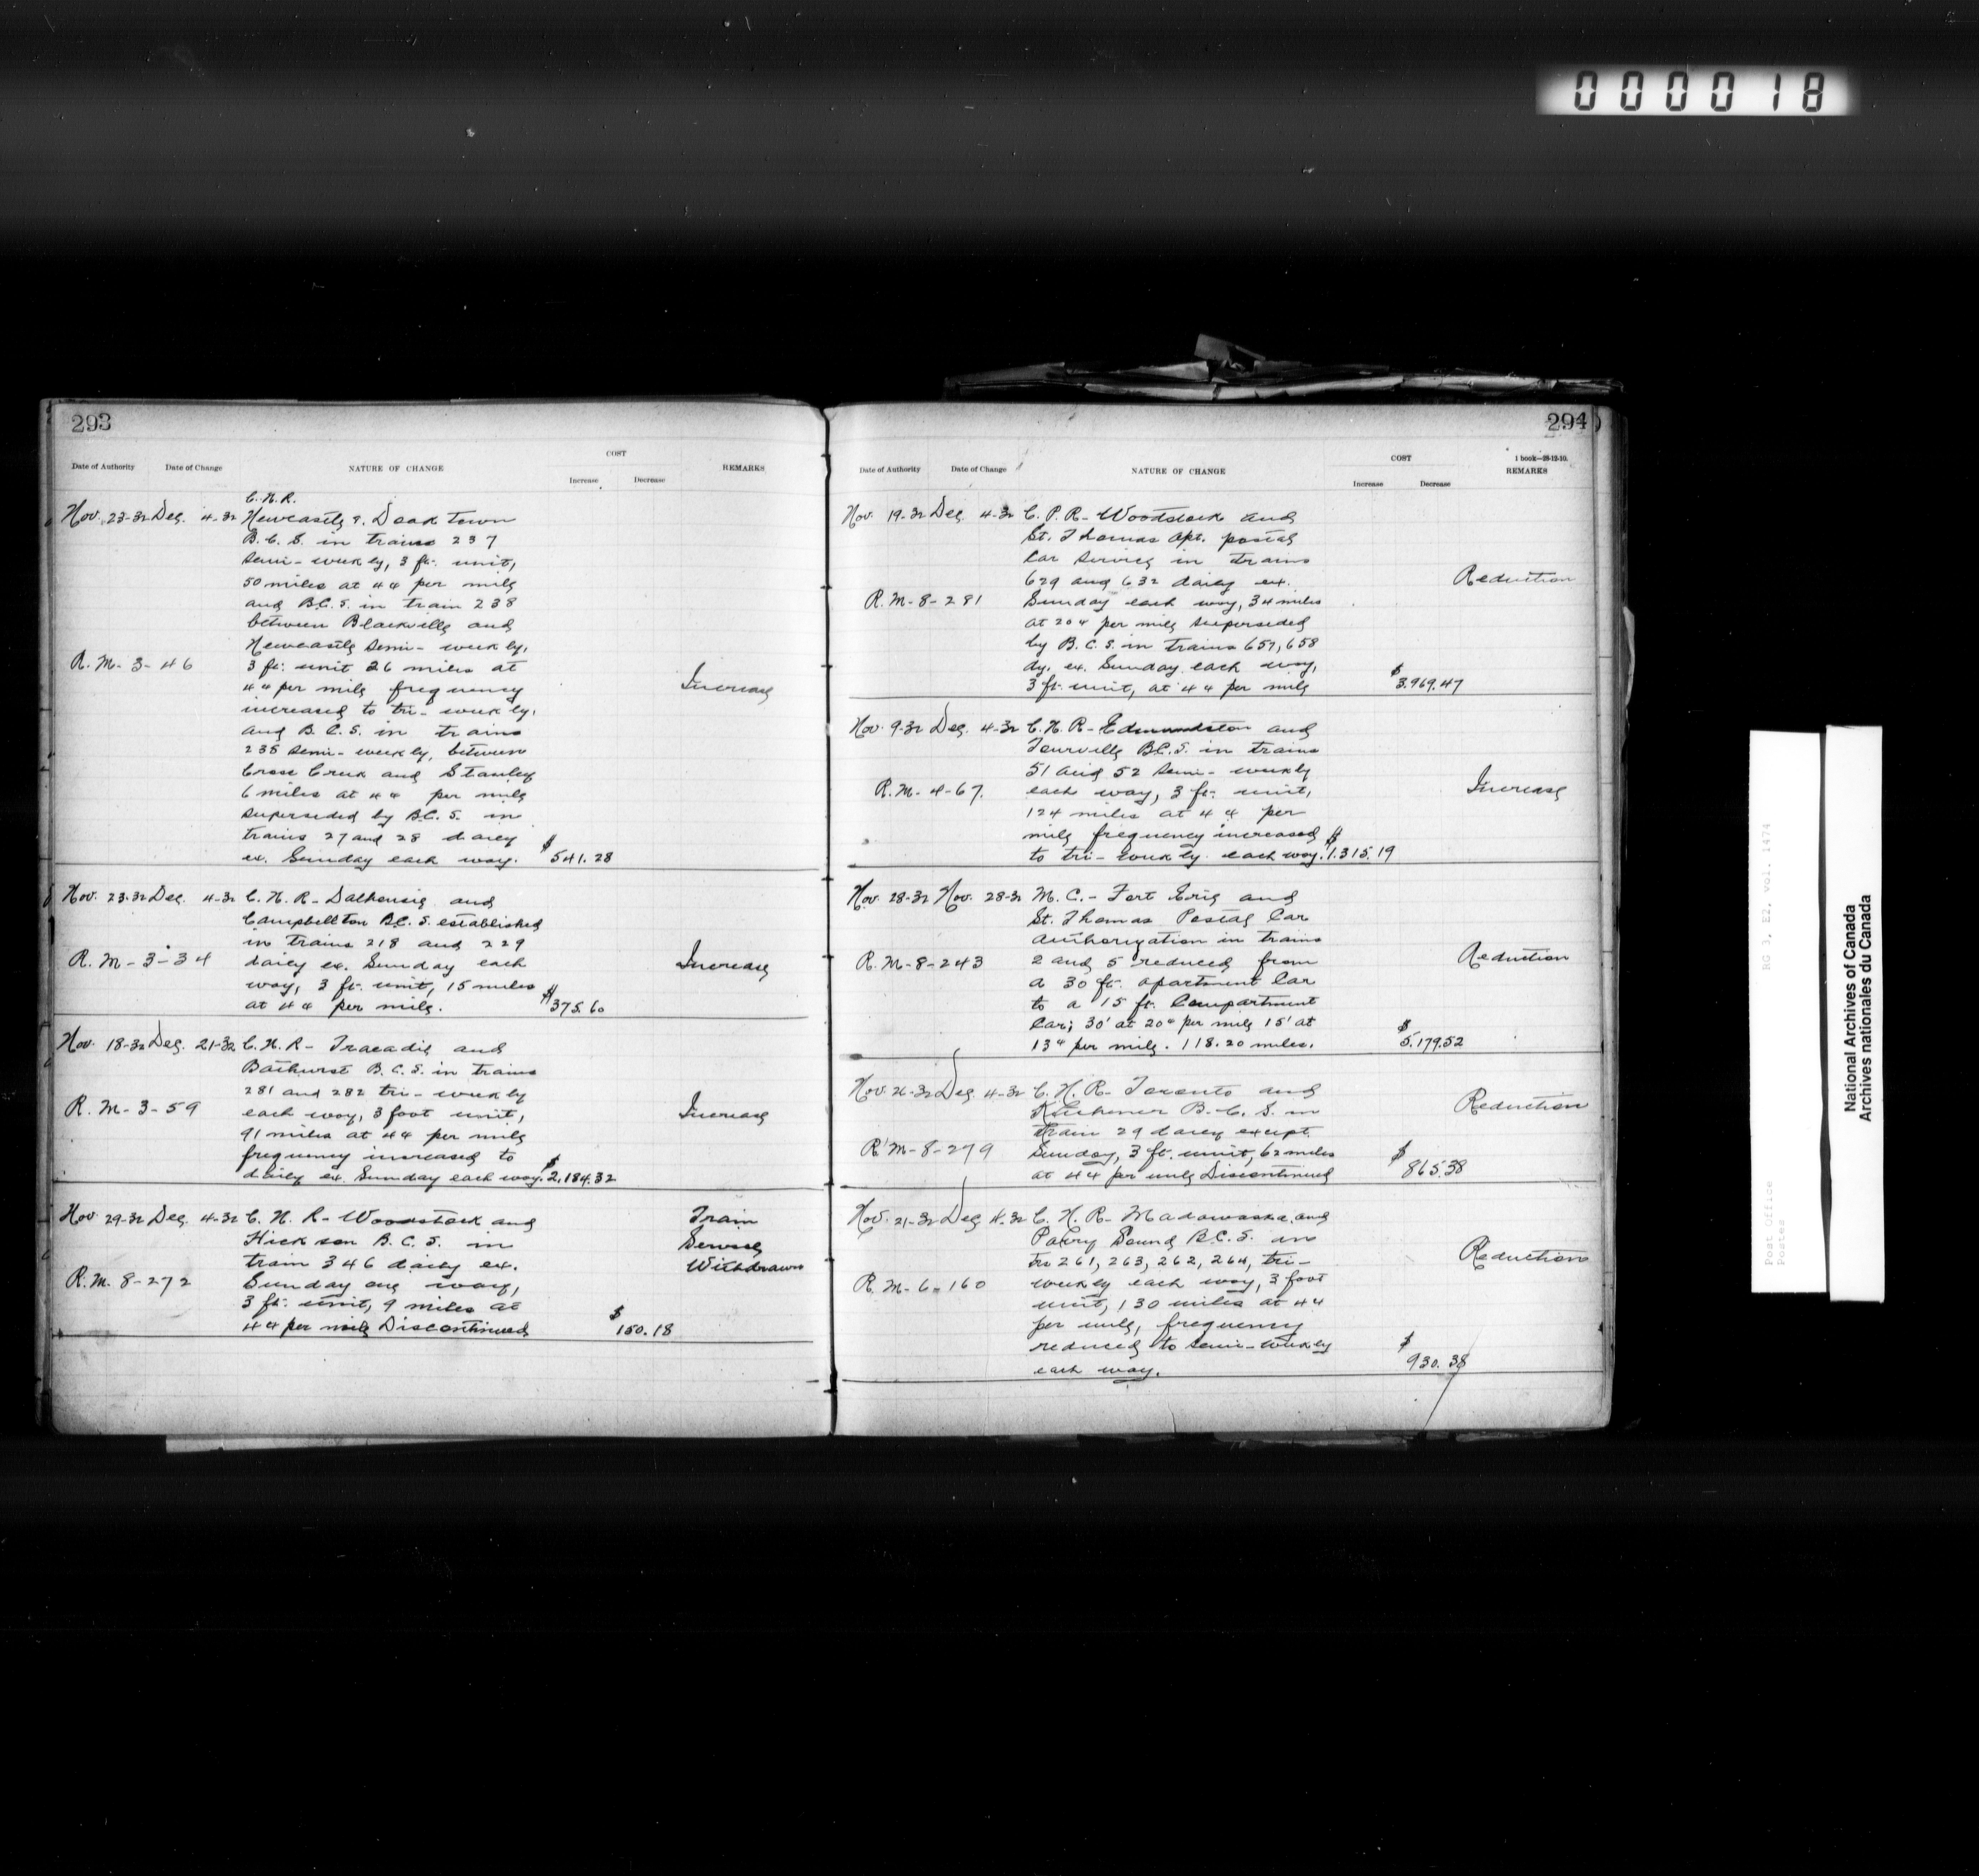 000018
293
COST
Date of Authority Date of Change NATURE OF CHANGE REMARKS
Increase Decrease
C.N.R.
Nov. 23-32 Dec. 4-32 Newcastle & Doaktown
B.C.S. in trains 237
semi-weekly, 3 ft. unit,
50 miles at 4¢ per mile
and B.C.S. in train 238
between Blackville and
Newcastle semi-weekly,
R.M-3-46 3 ft. unit 26 miles at
4¢ per mile frequency Increase
increased to tri-weekly,
and B.C.S. in trains
238 semi-weekly, between
Cross Creek and Stanley
6 miles at 4¢ per mile
superseded by B.C.S. in
trains 27 and 28 daily
ex. Sunday each way. $541.28
Nov. 23-32 Dec. 4-32 C.N.R- Dalhousie and
Campbellton B.C.S. established
in trains 218 and 229
R.M-3-34 daily ex. Sunday each Increase
way, 3 ft. unit, 15 miles
at 4¢ per mile. $375.60
Nov. 18-32 Dec. 21-32 C.N.R- Tracadie and
Bathurst B.C.S. in trains
281 and 282 tri-weekly
R.M-3-59 each way, 3 foot unit, Increase
91 miles at 4¢ per mile
frequency increased to
daily ex. Sunday each way. $2,184.32
Nov. 29-32 Dec. 4-32 C.N.R-Woodstock and Train
Hickson B.C.S. in Service
train 346 daily ex. Withdrawn
R.M. 8-272 Sunday one way,
3 ft. unit, 9 miles at
4¢ per mile Discontinued $150.18
294
COST
1 book-28-12-10.
Date of Authority Date of Change NATURE OF CHANGE REMARKS
Increase Decrease
Nov. 19-32 Dec. 4-32 C.P.R-Woodstock and
St. Thomas Apt. postal
Car service in trains
629 and 632 daily ex. Reduction
R.M-8-281 Sunday each way, 34 miles
at 20¢ per mile superseded
by B.C.S. in trains 657,658
dy. ex. Sunday each way,
3 ft. unit, at 4¢ per mile $3,969.47
Nov. 9-32 Dec. 4-32 C.N.R-Edmundston and
Tourville B.C.S. in trains
51 and 52 semi-weekly
R.M-4-67. each way, 3 ft. unit, Increase
124 miles at 4¢ per
mile frequency increased
to tri-weekly each way. $1,315.19
Nov. 28-32 Nov. 28-32 M.C.- Fort Erie and
St. Thomas Postal Car
authorization in trains
R.M-8-243 2 and 5 reduced from Reduction
a 30 ft. apartment Car
to a 15 ft. Compartment
Car; 30' at 20¢ per mile 15' at
13¢ per mile. 118.20 miles. $5,179.52
Nov. 26-32 Dec. 4-32 C.N.R- Toronto and
Kitchener B.C.S. in Reduction
train 29 daily except
R.M-8-279 Sunday, 3 ft. unit, 62 miles
at 4¢ per mile Discontinued $865.38
Nov. 21-32 Dec. 4-32 C.N.R- Madawaska and
Parry Sound B.C.S. in
trs 261, 263, 262, 264, tri- Reduction
R.M-6-160 weekly each way, 3 foot
unit, 130 miles at 4¢
per mile, frequency
reduced to semi-weekly
each way. $930.38
Post Office RG 3, E2, vol. 1474
Postes
National Archives of Canada
Archives nationales du Canada